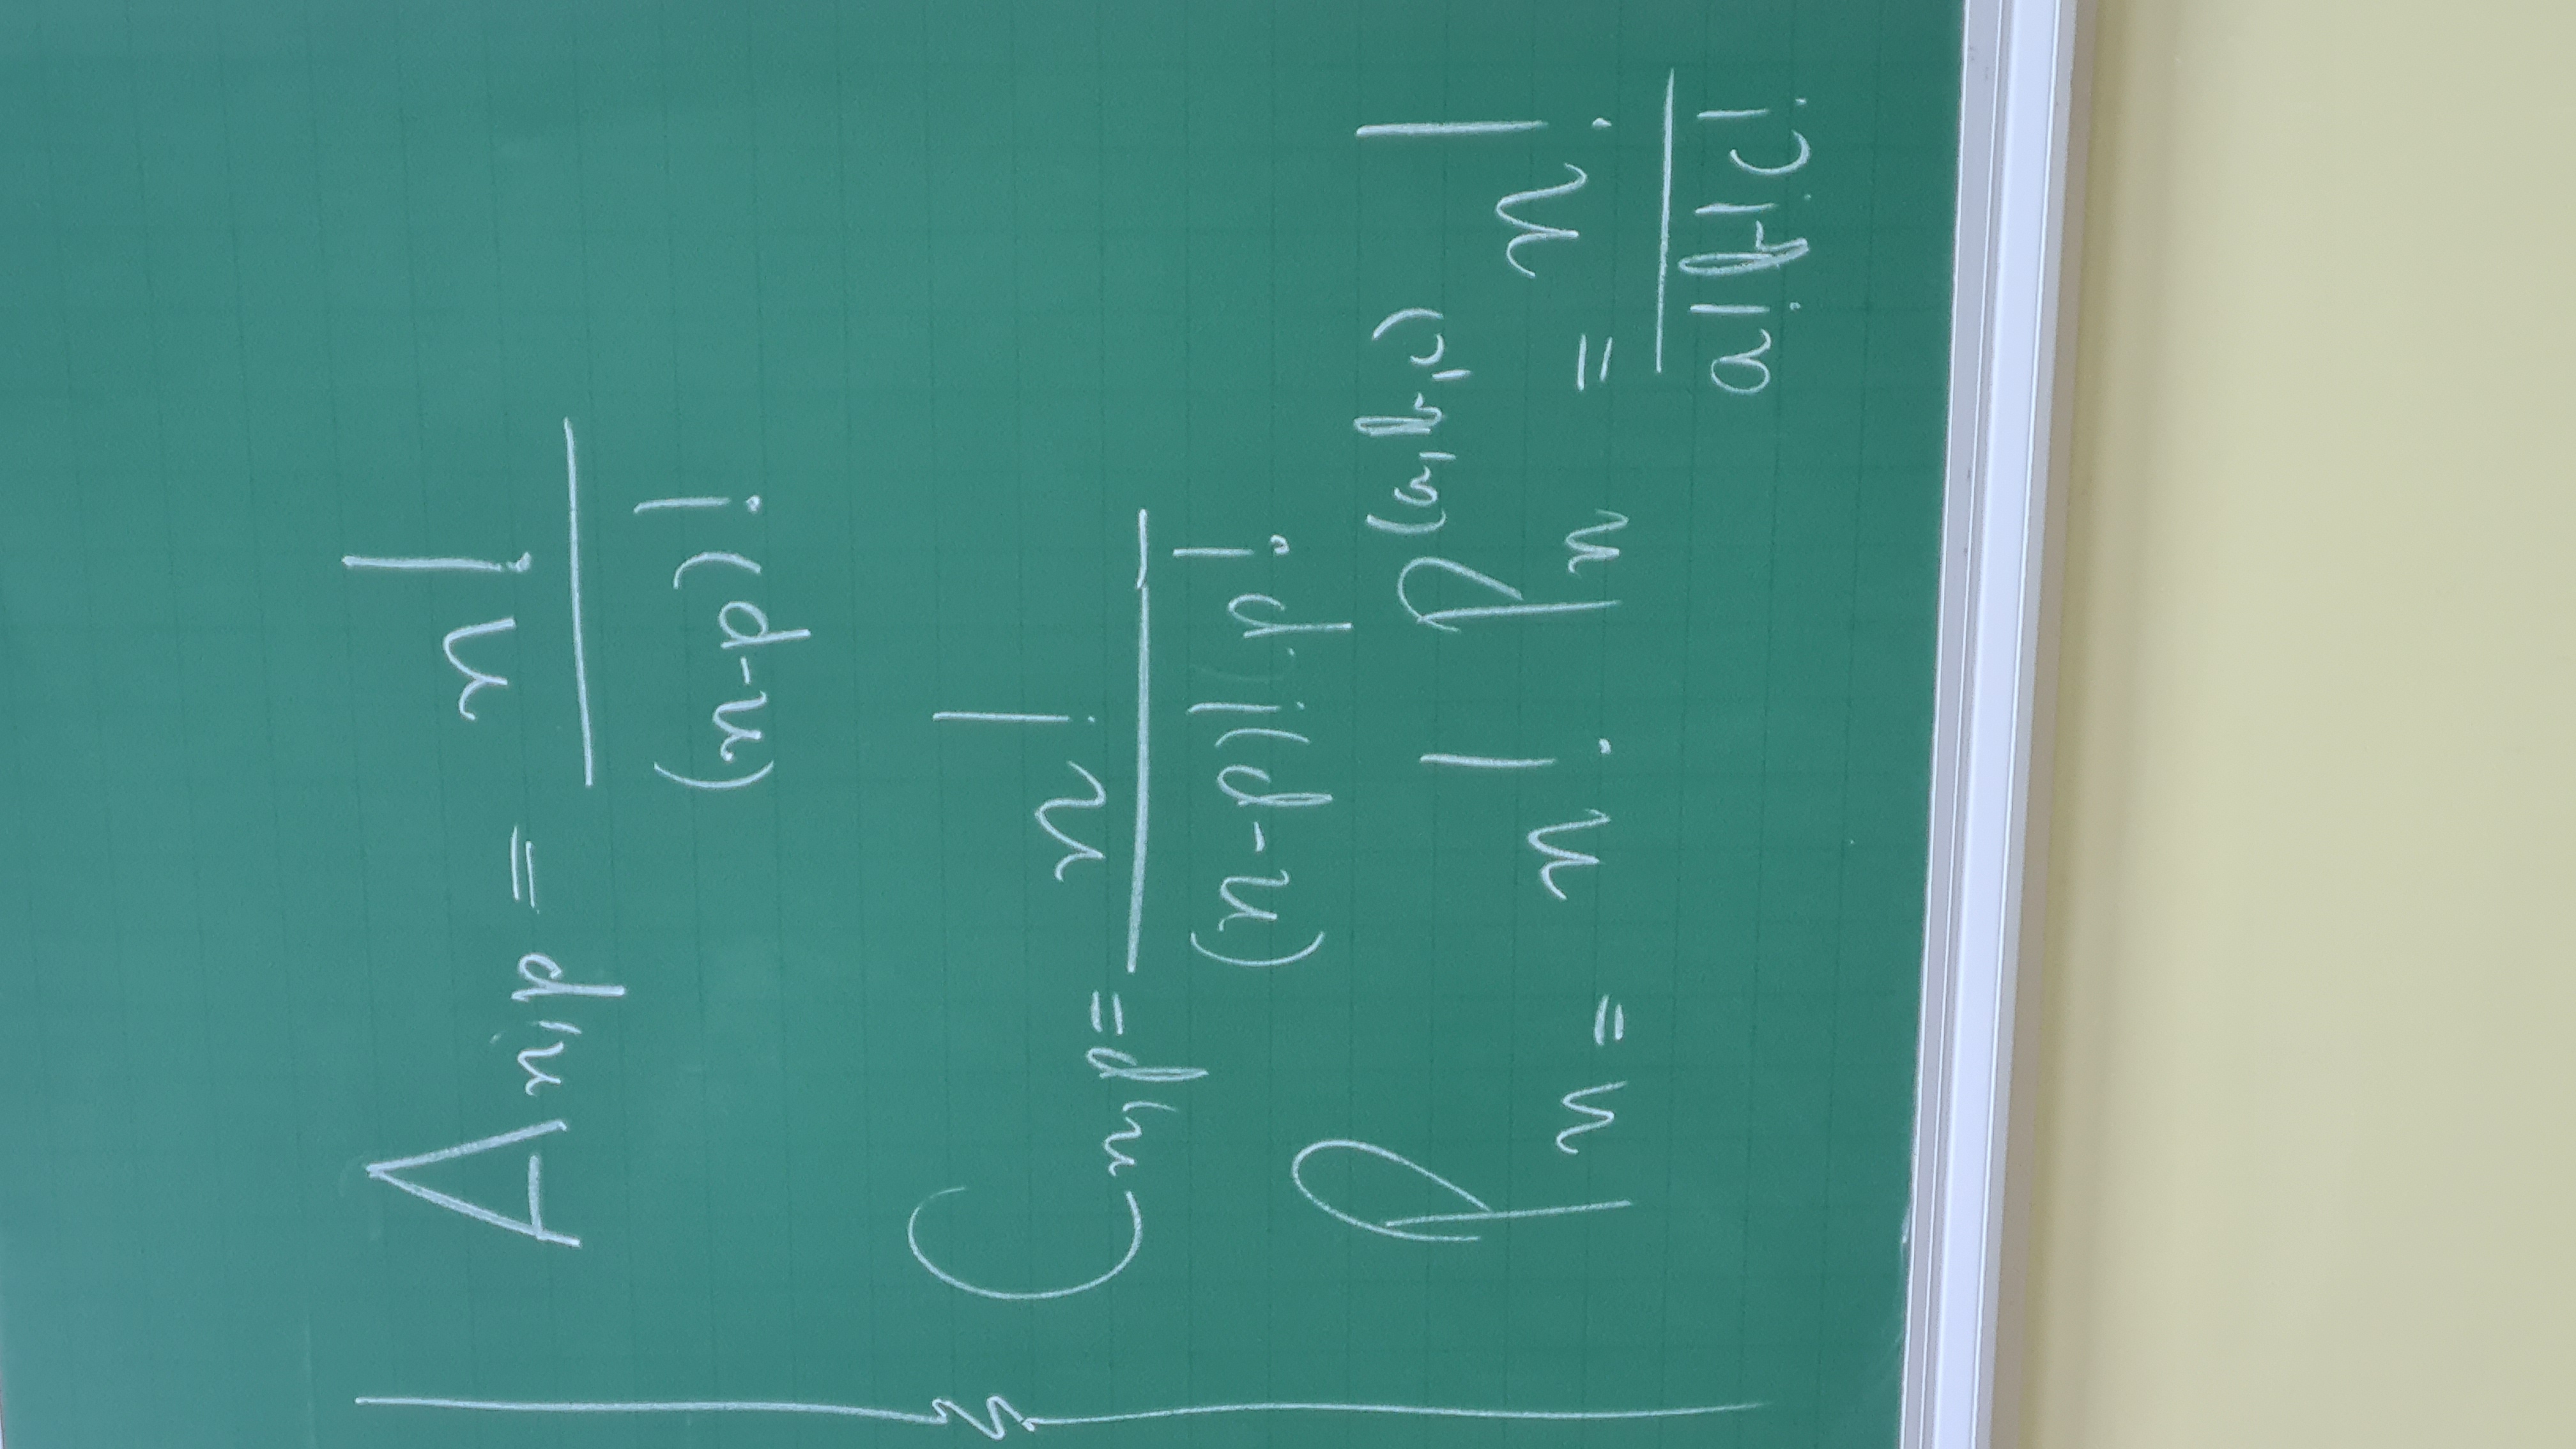 A n,p = n!
(n-p)!
C n,p = n!
(n-p)! . p!
P n = n! P n (a,b,c) = n!
a! b! c!